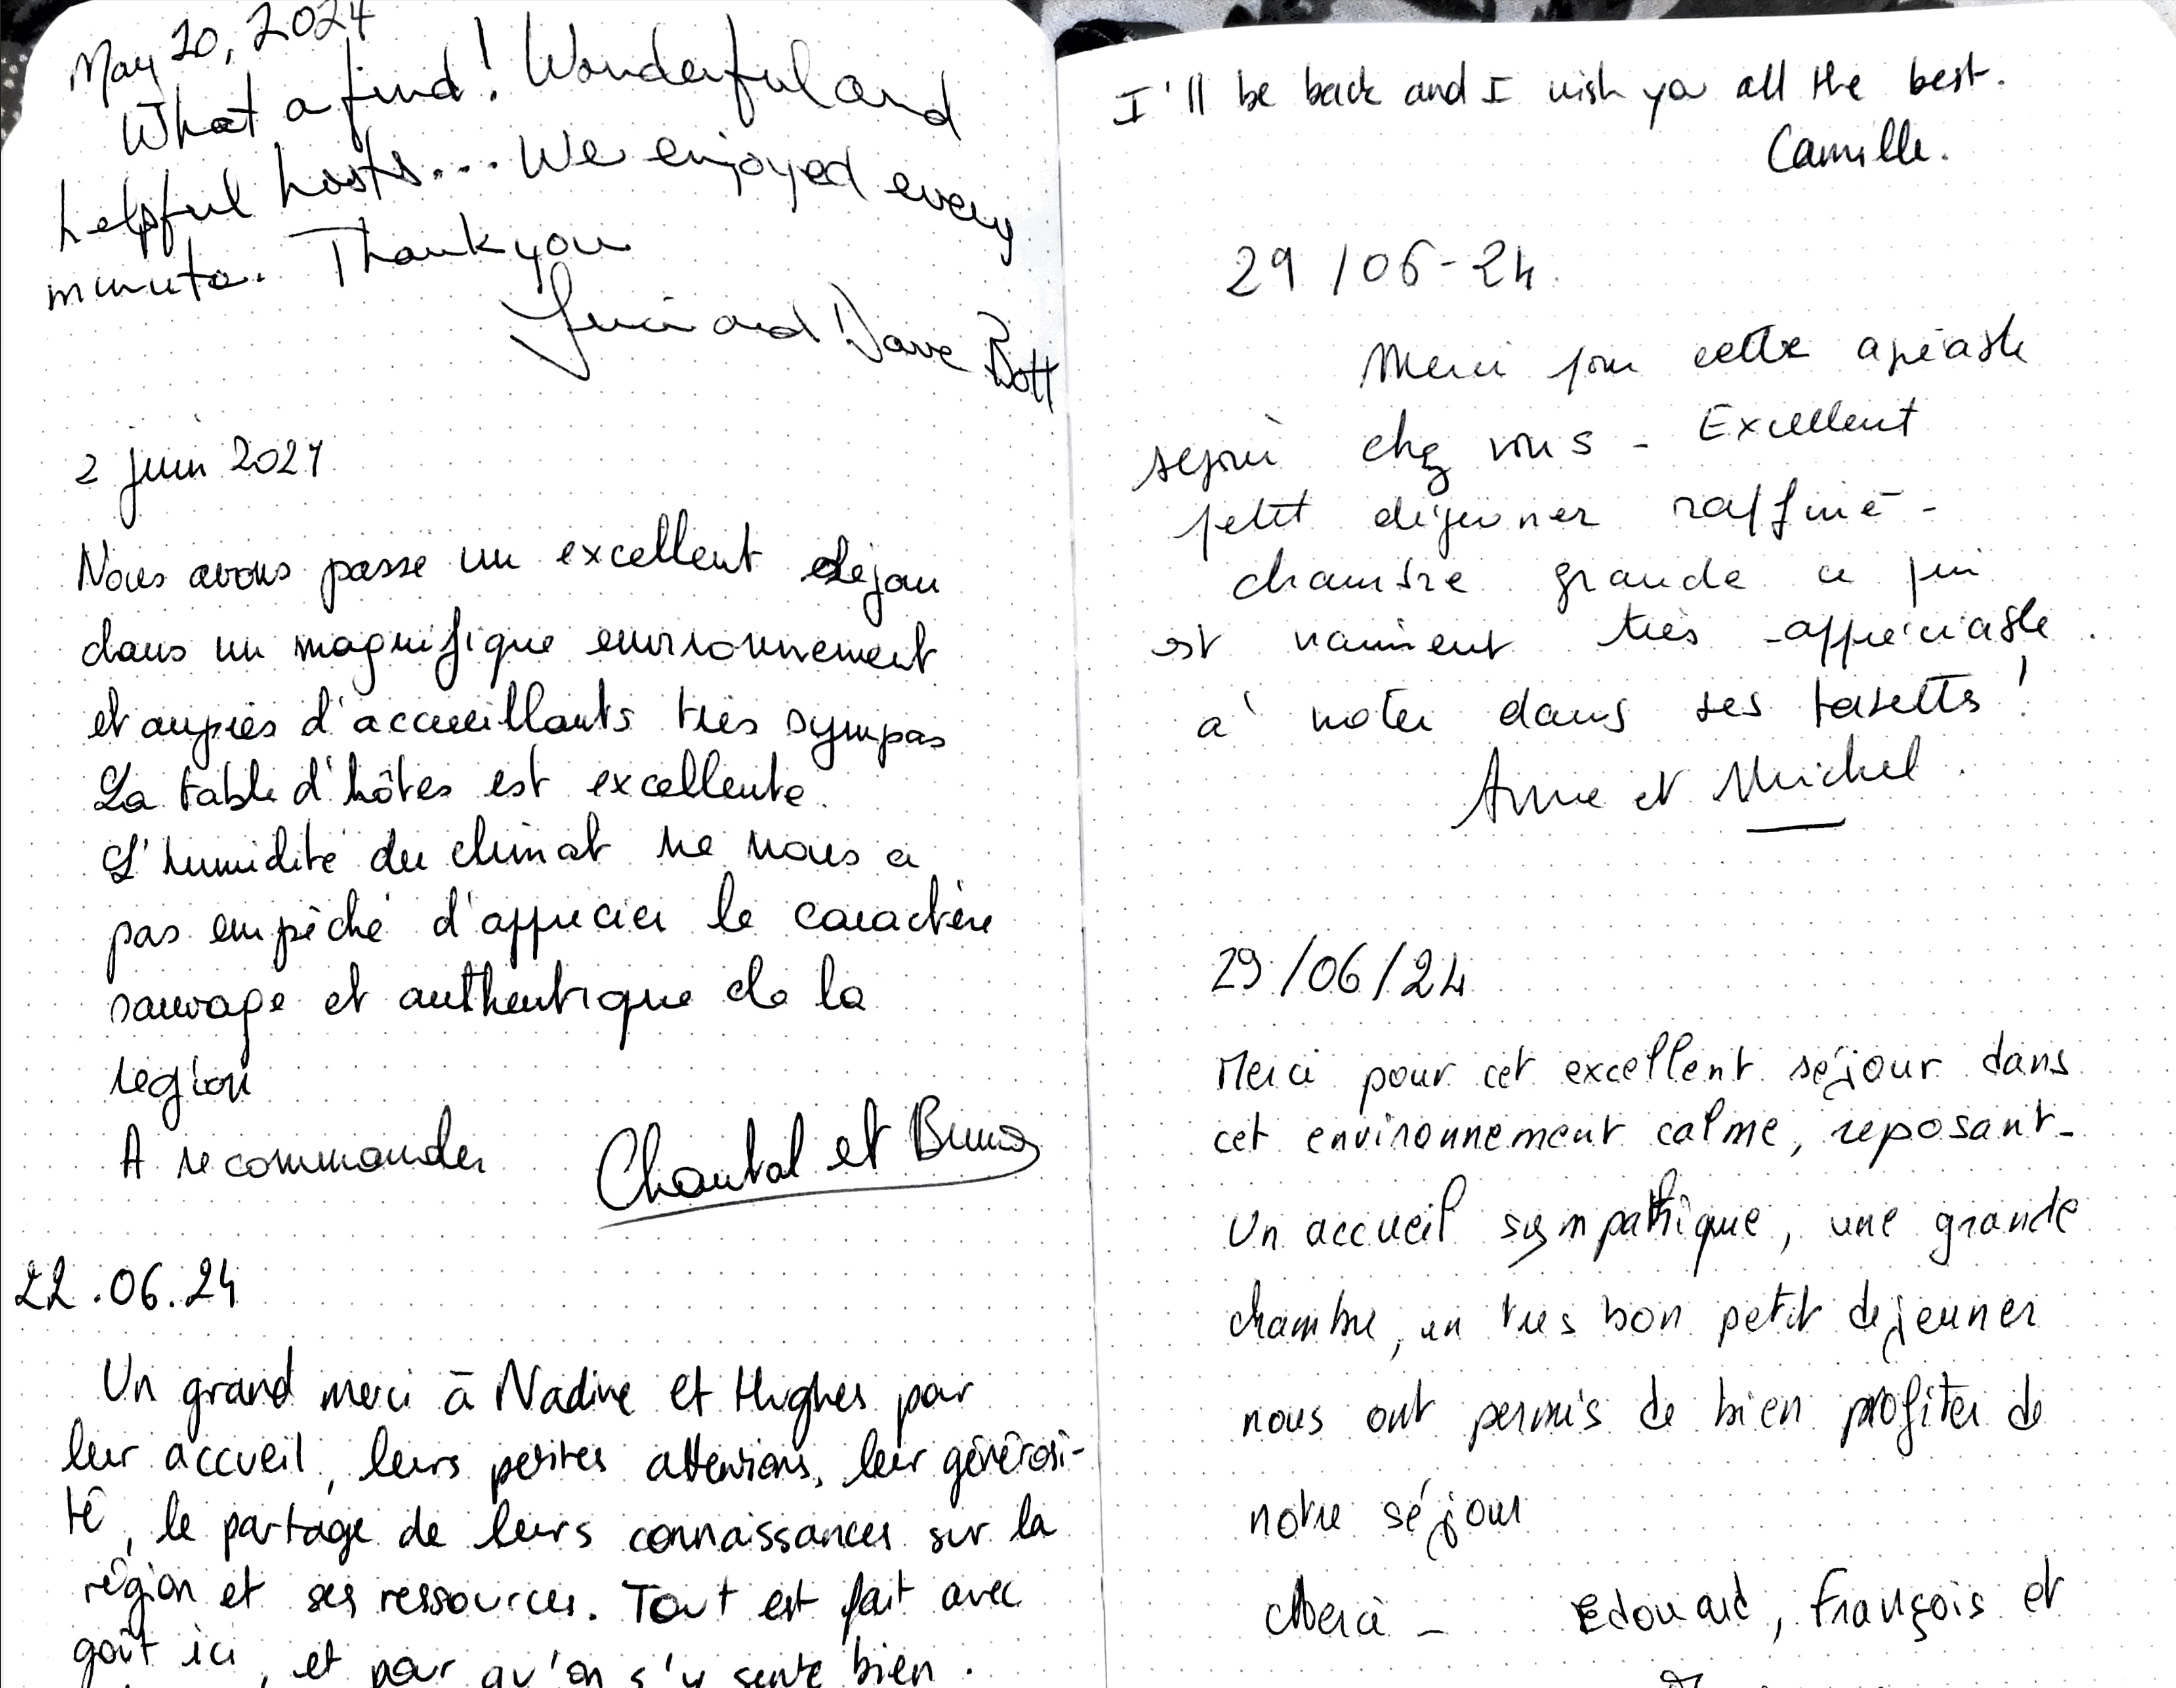 May 20, 2024
What a find! Wonderful and
helpful hosts... We enjoyed every
minute. Thank you
and Dave Bott
2 juin 2024
Nous avons passé un excellent séjour
dans un magnifique environnement
et auprès d'accueillants très sympas
La table d'hôtes est excellente.
L'humidité du climat ne nous a
pas empêché d'apprécier le caractère
sauvage et authentique de la
région
A recommander Chantal et Bruno
22.06.24
Un grand merci à Nadine et Hughes pour
leur accueil, leurs petites attentions, leur générosi-
té, le partage de leurs connaissances sur la
région et ses ressources. Tout est fait avec
goût ici, et pour qu'on s'y sente bien.
I'll be back and I wish you all the best.
Camille.
29/06-24
Merci pour cette
séjour chez vous - Excellent
petit déjeuner raffiné -
chambre grande ce qui
est vraiment très appréciable.
à noter dans ses !
Anne et Michel.
29/06/24
Merci pour cet excellent séjour dans
cet environnement calme, reposant-
Un accueil sympathique, une grande
chambre, un tres bon petit dejeuner
nous ont permis de bien profiter de
notre séjour
Merci - Edouard, François et